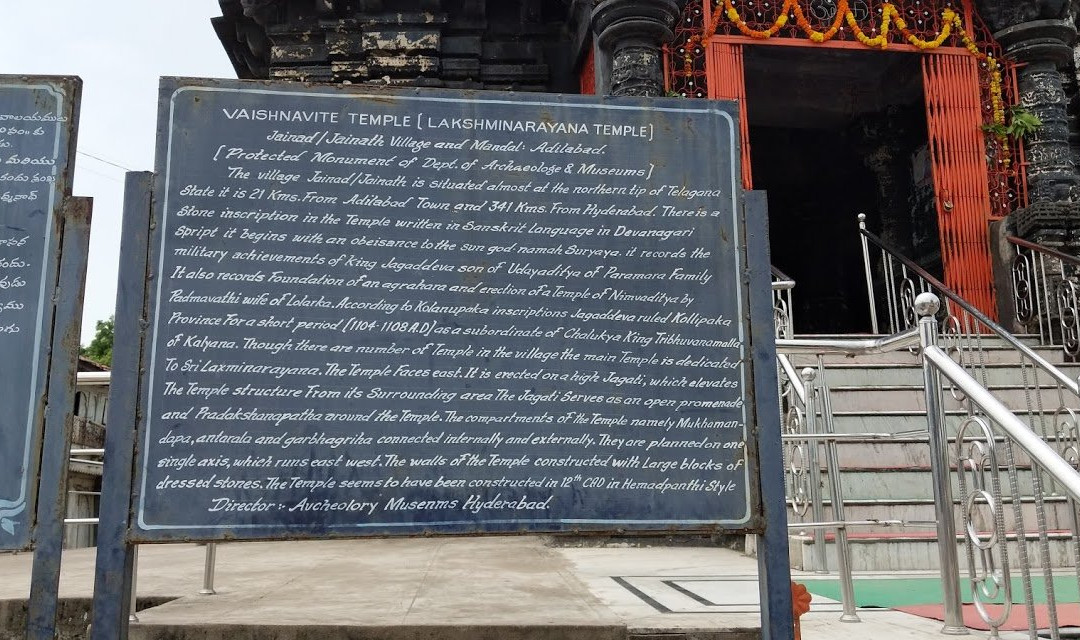 VAISHNAVITE TEMPLE [LAKSHMINARAYANA TEMPLE]
Jainad/Jainath Village and Mandal: Adilabad.
[Protected Monument of Dept. of Archaeologe & Museums]
The village Jainad/Jainath is situated almost at the northern tip of Telagana
State it is 21 Kms. From Adilabad Town and 341 Kms. From Hyderabad. There is a
Stone inscription in the Temple written in Sanskrit Language in Devanagari
Spript it begins with an obeisance to the sun god namah Suryaya. it records the
military achievements of King Jagaddeva son of Udayaditya of Paramara Family
It also records Foundation of an agrahara and erection of a Temple of Nimvaditya by
Padmavathi wife of Lolarka. According to Kolanupaka inscriptions Jagaddeva ruled Kollipaka
Province For a short period [1104-1108 A.D] as a subordinate of Chalukya King Tribhuvanamalla
of Kalyana. Though there are number of Temple in the village the main Temple is dedicated
To Sri Laxminarayana. The Temple Faces east. It is erected on a high Jagati, which elevates
The Temple structure From its Surrounding area The Jagati Serves as an open promenade
and Pradakshanapatha around the Temple. The compartments of the Temple namely Mukhaman-
dapa, antarala and garbhagriha connected internally and externally. They are planned on one
single axis, which runs east west. The walls of the Temple constructed with Large blocks of
dressed stones. The Temple seems to have been constructed in 12th CAD in Hemadpanthi Style
Director :- Aucheolory Musenms Hyderabad.